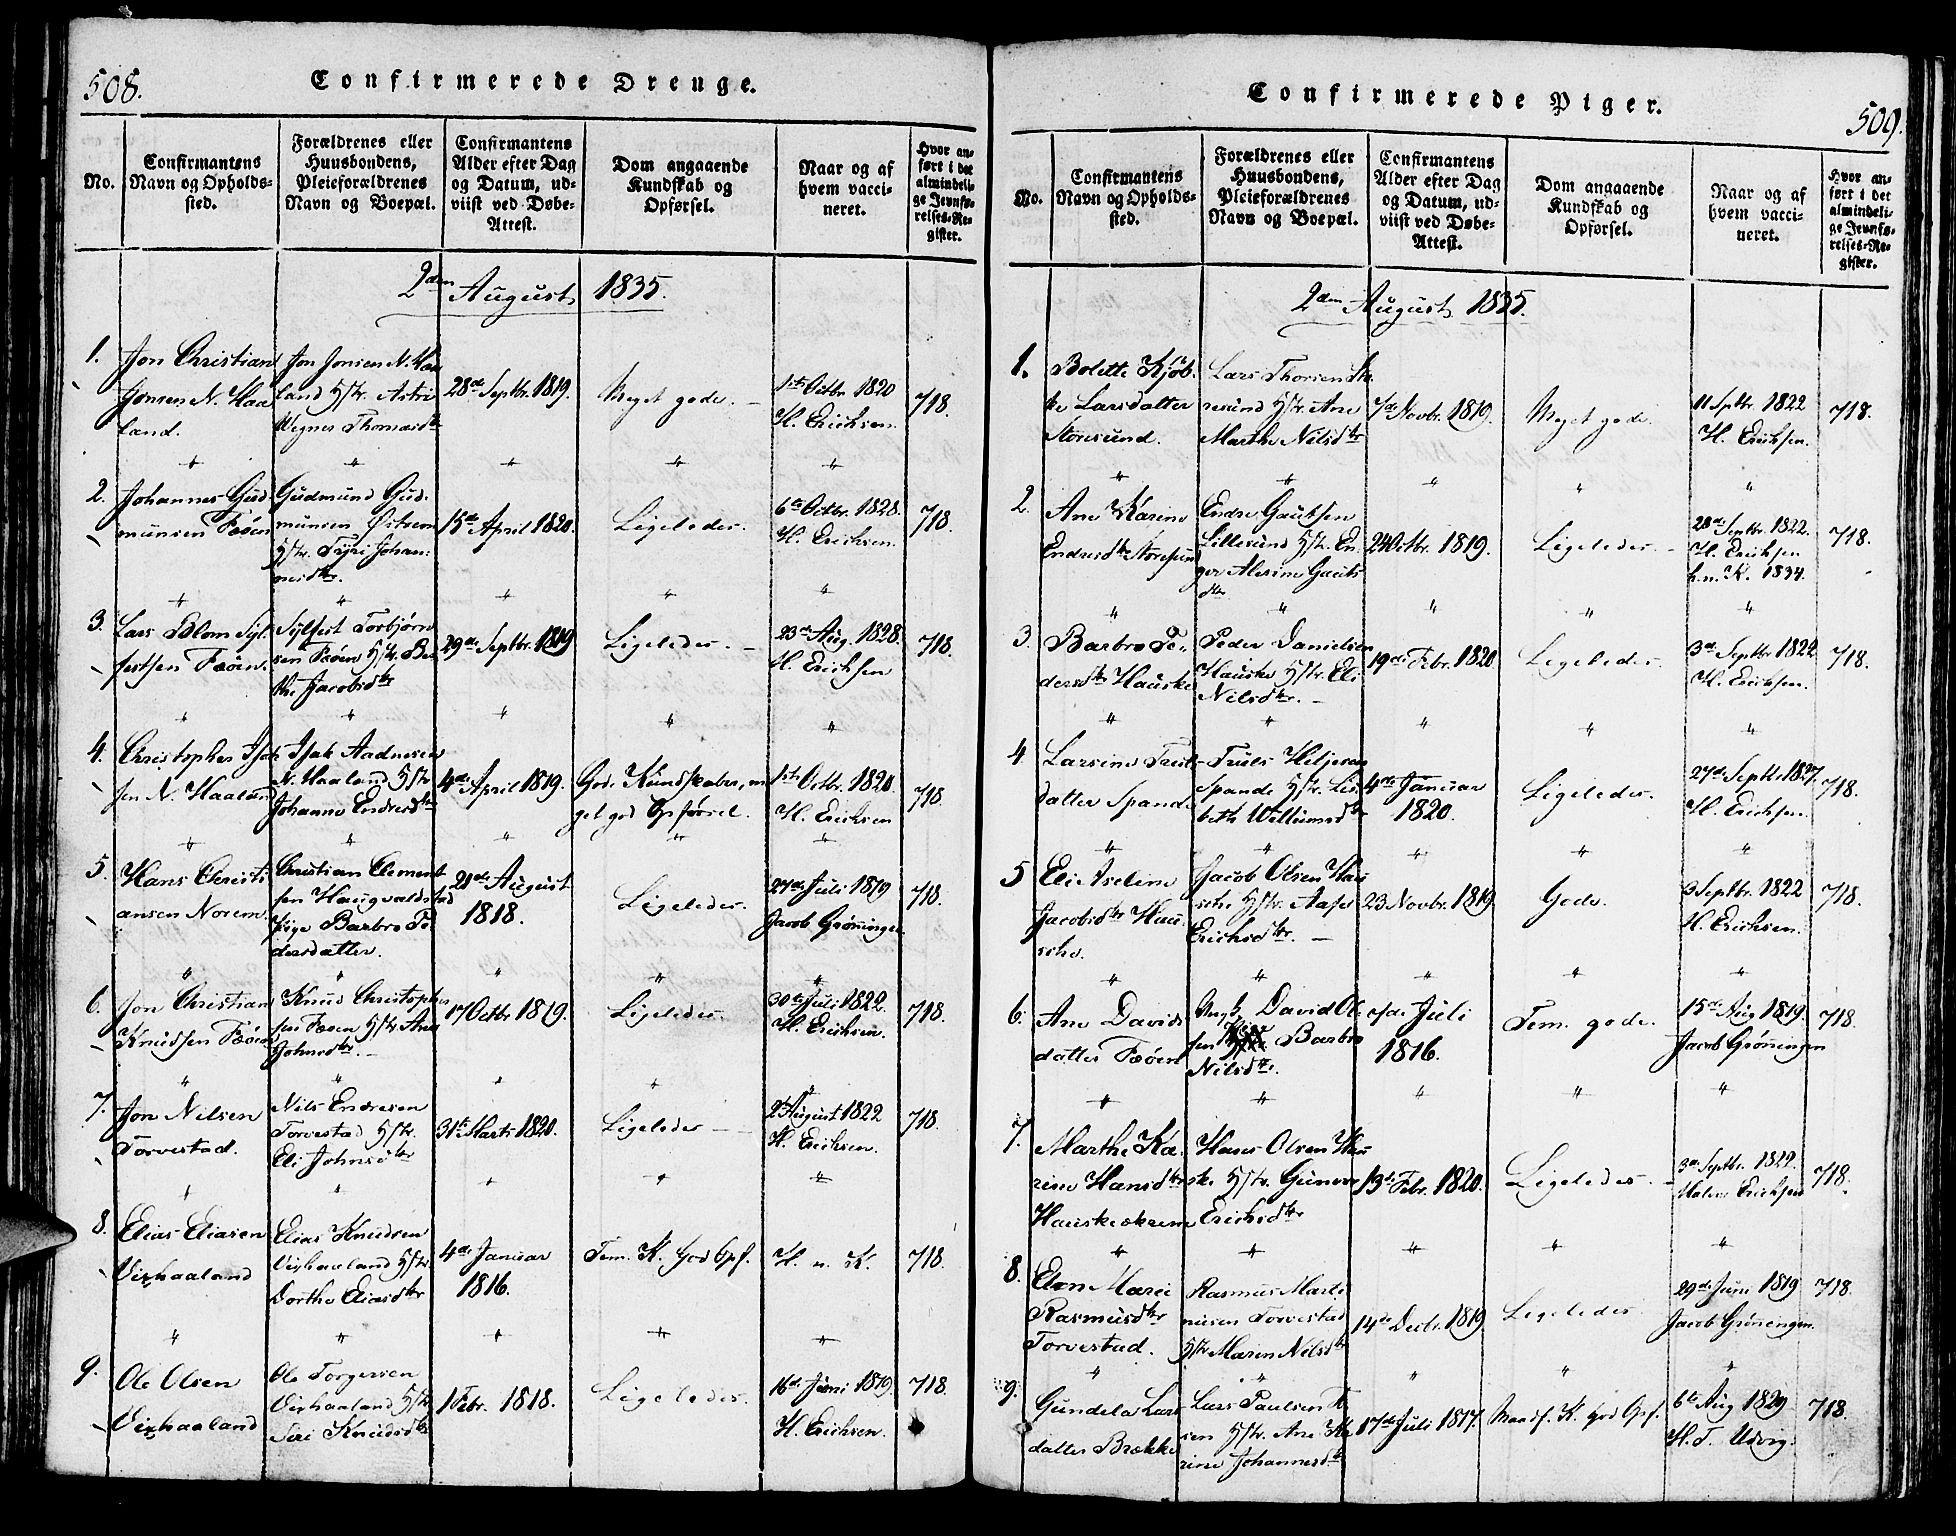 508.
Confirmerede Drenge.
No.
Confirmantens
Navn og Opholds-
sted.
Forældrenes eller
Huusbondens,
Pleieforældrenes
Navn og Boepæl.
Confirmantens
Alder efter Dag
og Datum, ud-
viist ved Døbe-
Attest.
Dom angaaende
Kundskab og
Opførsel.
Naar og af
hvem vacci-
neret.
Hvor an-
ført i det
almindeli-
ge Jevnfø-
relses-Re-
gister.
2den August 1835.
1.
Jon Christian
Jonsen N. Haa
land.
Jon Jonsen N. Haa
land Hstr. Astri
Wegner Thomasdtr
28de Septbr. 1819.
Meget gode. —
1ste Octbr 1820
H. Erichsen.
718.
2.
Johannes Gud-
munsen Føöen
Gudmund Gud-
munsen Östrem
Hstr. Tyri Johan-
nesdtr.
15de April 1820.
Ligeledes.
6te Octbr. 1828.
H. Erichsen.
718.
3.
Lars Blom Syl-
festsen Føöen.
Sylfest Torbjørn
sen Føöen Hstr. Ber
the Jacobsdtr
29de Septbr. 1819
Ligeledes. —
23de Aug. 1828.
H. Erichsen
718.
4.
Christopher Isak
sen N. Haaland
Isak Aadnesen
N. Haaland Hstr.
Johanne Endresdtr
4de April 1819.
Gode Kundskaber, me
get god Opførsel.
1ste Octbr. 1820.
H. Erichsen
718.
5.
Hans Christi
ansen Norem.
Christian Clement
sen Haugvaldstad
Pige Barbro Pe
dersdatter.
21de August
1818.
Ligeledes.
27de Juli 1819
Jacob Grønningen
718.
6.
Jon Christian
Knudsen Føöen
Knud Christopher
sen Føöen Hstr Ane
Johnsdtr. —
17 Octbr 1819.
Ligeledes.
30te Juli 1822.
H. Erichsen.
718.
7.
Jon Nilsen
Torvestad.
Nils Endresen
Torvestad Hstr.
Eli Johnsdtr
31te Marts 1820.
Ligeledes —
2 August 1822
H. Erichsen.
718.
8.
Elias Eliasen
Vixhaaland
Elias Knudsen
Vixhaaland Hstr.
Dorthe Eliasdtr
4de Januar
1816.
Tem. K. God Opf.
H. n. K.
718.
9.
Ole Olsen
Vixhaaland
Ole Torgersen
Vixhaaland Hstr
Siri Knudsdtr
1 Febr. 1818.
Ligeledes.
16de Juni 1819
H. Erichsen.
718.
Confirmerede Piger.
509.
No.
Confirmantens
Navn og Opholds-
sted.
Forældrenes eller
Huusbondens,
Pleieforældrenes
Navn og Boepæl.
Confirmantens
Alder efter Dag
og Datum, ud-
viist ved Døbe-
Attest.
Dom angaaende
Kundskab og
Opførsel.
Naar og af
hvem vacci-
neret.
Hvor an-
ført i det
almindeli-
ge Jevnfø-
relses-Re-
gister.
2den August 1835.
1.
Bolette Kjöb-
ke Larsdatter
Storesund.
Lars Thorsen Sto
resund Hstr. Ane
Marthe Nilsdtr
7de Novbr. 1819.
Meget gode.
11 Septbr. 1822
H. Erichsen.
718.
2.
Ane Karine
Endresdtr Storesund
Endre Gautsen
Lillesund Hstr. En
ger Alexine Gauts
dtr
24 Octbr. 1819.
Ligeledes. —
28de Septbr. 1822.
H. Erichsen
h. n. K. 1834.
718.
3.
Barbro Pe-
dersdtr Hauske
Peder Danielsen
Hauske Hstr. Eli
Nilsdtr. —
19de Febr. 1820.
Ligeledes.
3de Septbr 1822
H. Erichsen.
718.
4
Larsine Truls-
datter Spande
Truls Hiljesen
Spande Hstr. Lis
beth Willumsdtr
4de Januar
1820.
Ligeledes.
27de Septbr 1827.
H. Erichsen.
718.
5
Eli Axeline
Jacobsdtr Hau
sche.
Jacob Olsen Hau
sche Hstr. Aase
Erichsdtr. —
23 Novbr. 1819
Gode.
3 Septbr. 1822
H. Erichsen.
718.
6.
Ane Davids
datter Føöen
David Ol
sen Barbro
Nilsdtr.
7de Juli
1816.
Tem. gode.
15de Aug 1819.
Jacob Grönningen
718.
7.
Marthe Ka-
rine Hansdtr
Hauskeøkrene
Hans Olsen Hau
ske Hstr. Gunvor
Erichsdtr
13de Febr. 1820.
Ligeledes —
3de Septbr. 1822.
Halvor Erichsen
718.
8.
Elen Marie
Rasmusdtr
Torvestad.
Rasmus Marti
nusen Torvestad
Hstr Maren Nilsdtr
14de Decbr. 1819
Ligeledes.
29de Juni 1819
Jacob Grönningen.
718.
9.
Gundela Lars
datter Brække
Lars Paulsen
sen Hstr. Ane Ka
rine Johannesdtr
17de Juli 1817.
Maadl. K. God Opf.
6te Aug 1829
H. T. Udvig.
718.